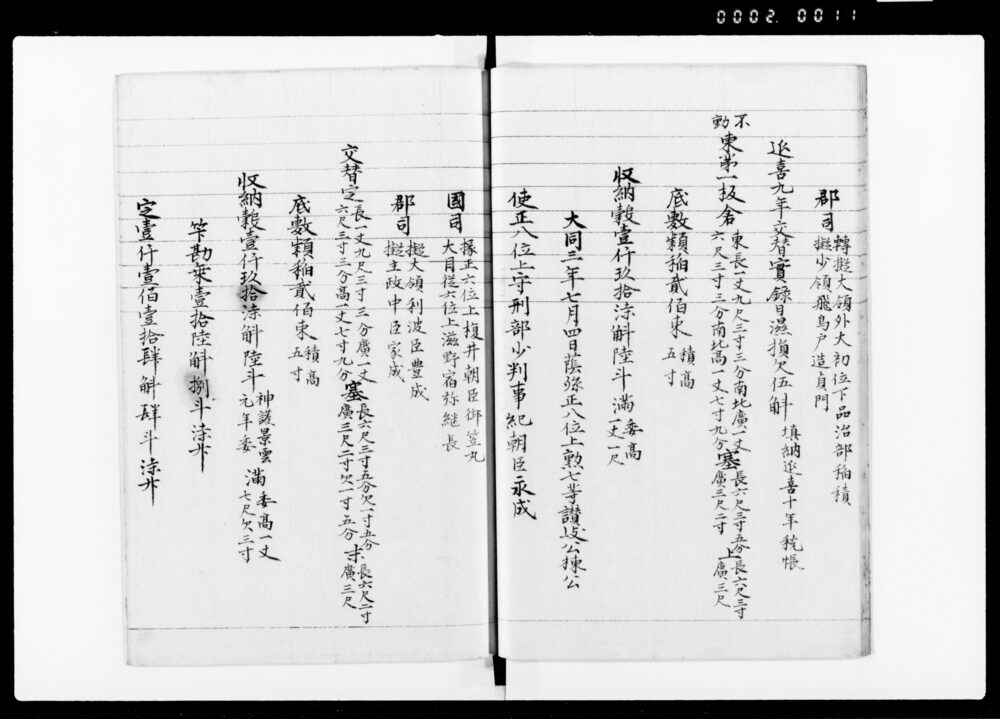 0002.0011
郡司 轉擬大領外大初位下品治部稲積
擬少領飛鳥戸造貞門
延喜九年交替實錄日濕損欠伍斛 填納延喜十年税帳
不動
東第一板倉 東長一丈九尺三寸三分南北廣一丈
六尺三寸三分南北高一丈七寸九分
塞 長六尺三寸五分
廣三尺二寸
上 長六尺三寸
廣三尺
底敷穎稲貳佰束 積高
五寸
収納穀壹仟玖拾漆斛陸斗 滿 委高
一丈一尺
大同三年七月四日蔭孫正八位上勲七等讃岐公棟公
使正八位上守刑部少判事紀朝臣永成
國司 掾正六位上榎井朝臣御笠丸
大目従六位上滋野宿祢継長
郡司 擬大領利波臣豊成
擬主政中臣家成
交替定 長一丈九尺三寸三分廣一丈
六尺三寸三分高一丈七寸九分
塞 長六尺三寸五分欠一寸五分
廣三尺二寸欠一寸五分
寸 長六尺二寸
廣三尺
底敷穎稲貳佰束 積高
五寸
収納穀壹仟玖拾漆斛陸斗 神護景雲
元年委
滿 委高一丈
七尺欠三寸
竿勘乗壹拾陸斛捌斗漆升
定壹仟壹佰壹拾肆斛肆斗漆升